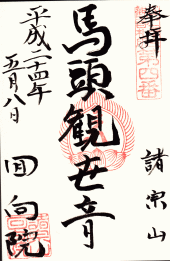 奉拝
第四番
諸宗山
馬頭観世音
平成二十四年
五月八日
回向院